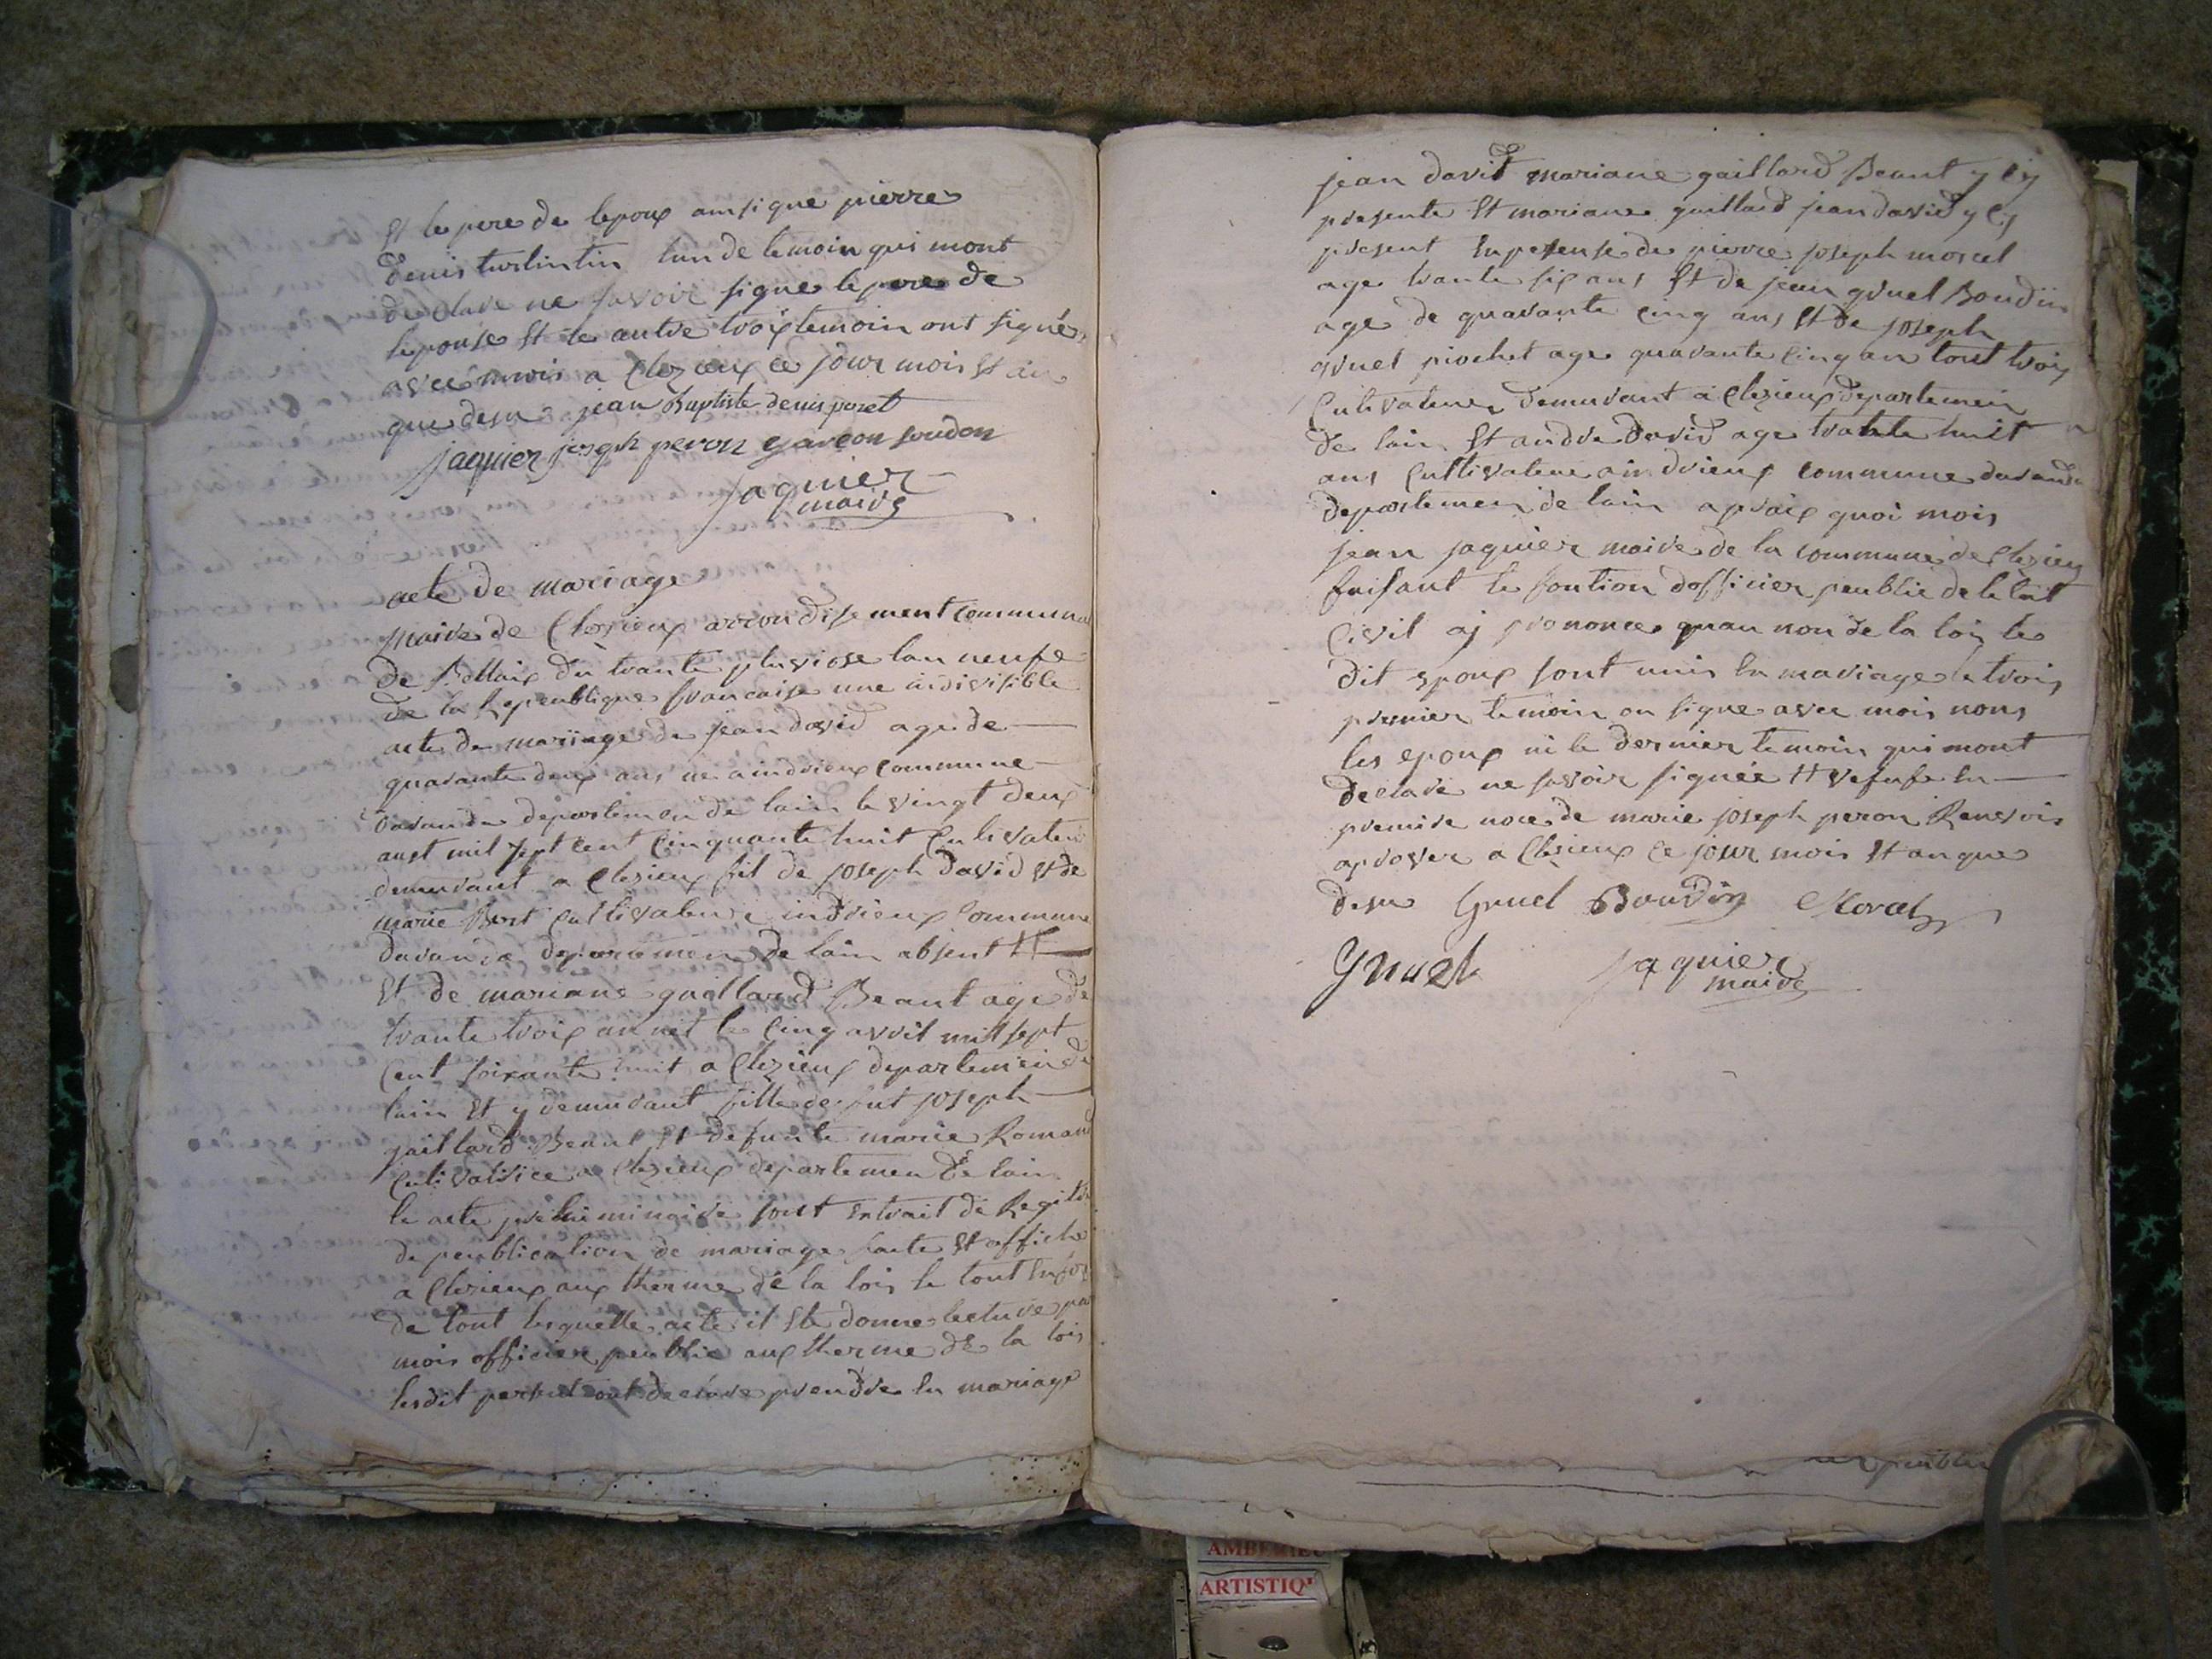 Et le pere de lepoux ainsi que pierre
denis turlintin lun de temoin qui mont
declare ne savoir signe le pere de
lepouse Et le autre troix temoin ont signé
avec mois a Clezieux ce jour mois Et an
que desu jean Baptiste denis poret
jaquier joseph peron garcon soudon
jaquier
maire
acte de mariage
Mairie de Clezieux arrondisement communal
de Bellaix du trante pluviose lan neufe
de la Republique francaise une indivisible
acte de mariage de jean david age de
quarante deux ans ne aindrieux commune
davanda departemen de lain le vingt deux
aust mil sept cent cinquante huit Cultivateur
demurant a Clezieux fit de joseph david Et de
marie Bert Cultivateur indrieux Commune
davanda departemen de lain absent #
Et de mariane gaillard Beant age de
trante troix an net le cinq avril mil sept
cent soixante huit a Clezieux departemein de
lain Et y demurant fille de fut joseph
gaillard Beant Et defunte marie Romand
Cultivatrice a Clezieux departemen de lain
le acte preliminaire sont Extrait de Regitre
de peublication de mariage faite Et affiche
a Clezieux aux therme de la lois le tout En for
de tout lesquelle acte il Ete donne lecture par
mois officier peublic aux therme de la lois
lesdit ont declare prendre En mariage
jean david mariane gaillard Beant y cy
presente Et mariane gaillard jean david y cy
present En pesense de pierre joseph morel
age trante six ans Et de jean gruel Boudin
age de quarante cinq ans Et de joseph
gruel piochet age quarante cinq an tout trois
Cultivateur demurant a Clezieux departemein
de lain Et andre david age trante huit
ans Cultivateur aindrieux commune davanda
departemen de lain apraix quoi mois
jean jaquier maire de la commune de Clezieux
faisant le fontion dofficier peublic de letat
Civil aj prononce quau non de la lois le
dit epoux sont unis En mariage le trois
premier temoin on signe avec mois nons
les epoux ni le dernier temoin qui mont
declare ne savoir signée # vefufe En
premire noce de marie joseph peron Renvois
aprover a Clezieux ce jour mois Et an que
desu Gruel Boudin Morel
Gruel jaquier
maire
peublic
AMBERIEU
ARTISTIQ